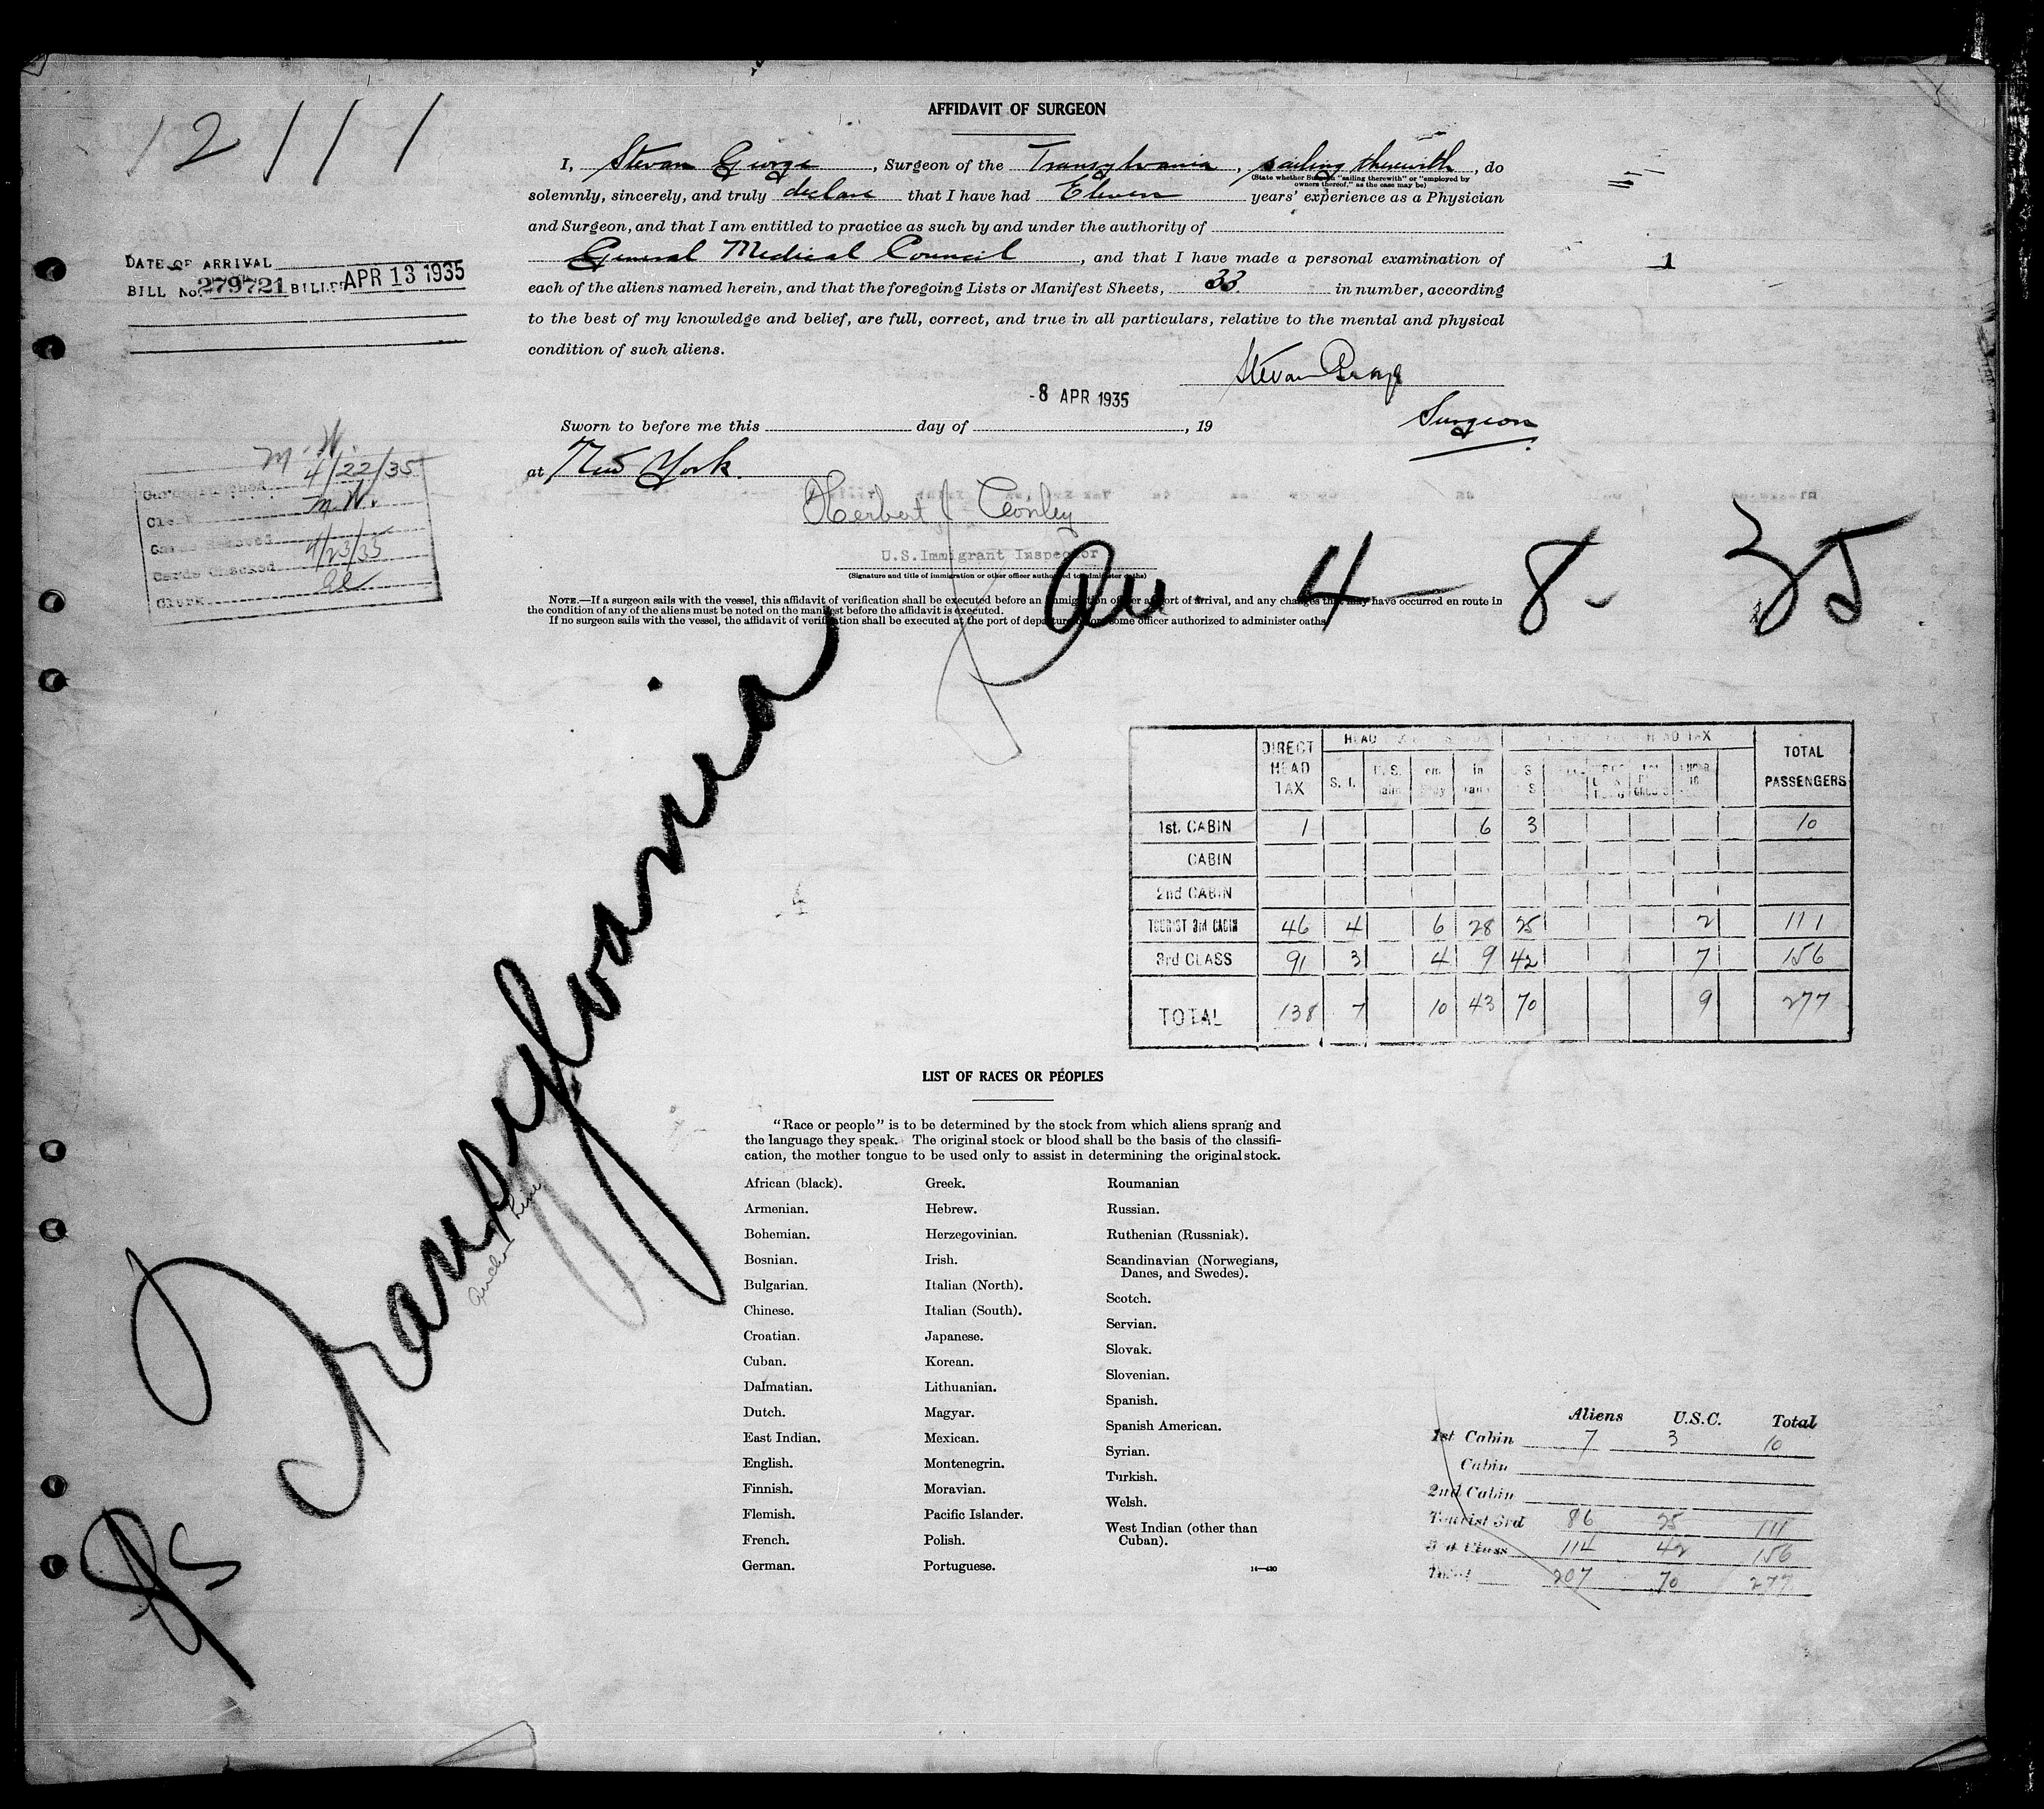 12111
AFFIDAVIT OF SURGEON
I, Stevan George, Surgeon of the Transylvania, sailing therewith, do
(State whether Surgeon "sailing therewith" or "employed by
owners thereof," as the case may be)
solemnly, sincerely, and truly declare that I have had Eleven years' experience as a Physician
and Surgeon, and that I am entitled to practice as such by and under the authority of
General Medical Council, and that I have made a personal examination of
each of the aliens named herein, and that the foregoing Lists or Manifest Sheets, 33 in number, according
to the best of my knowledge and belief, are full, correct, and true in all particulars, relative to the mental and physical
condition of such aliens.
1
DATE OF ARRIVAL
BILL No. 279721 BILLED APR 13 1935
Stevan George
Surgeon
-8 APR 1935
Sworn to before me this day of , 19
at New York.
Herbert J Conley
U.S. Immigrant Inspector
(Signature and title of immigration or other officer authorized to administer oaths)
M.W.
4/22/35
Clerk M.W.
Cards Removed
Cards Checked 4/23/35
Clerk
NOTE.—If a surgeon sails with the vessel, this affidavit of verification shall be executed before an immigration officer at port of arrival, and any changes that may have occurred en route in
the condition of any of the aliens must be noted on the manifest before the affidavit is executed.
If no surgeon sails with the vessel, the affidavit of verification shall be executed at the port of departure before some officer authorized to administer oaths.
4-8-35
SS Transylvania
Anchor Line
DIRECT HEAD TAX S. I. U. S. in TOTAL PASSENGERS
1st. CABIN 1 6 3 10
CABIN
2nd CABIN
TOURIST 3rd CABIN 46 4 6 28 25 2 111
3rd CLASS 91 3 4 9 42 7 156
TOTAL 138 7 10 43 70 9 277
LIST OF RACES OR PEOPLES
"Race or people" is to be determined by the stock from which aliens sprang and
the language they speak. The original stock or blood shall be the basis of the classifi-
cation, the mother tongue to be used only to assist in determining the original stock.
African (black).
Armenian.
Bohemian.
Bosnian.
Bulgarian.
Chinese.
Croatian.
Cuban.
Dalmatian.
Dutch.
East Indian.
English.
Finnish.
Flemish.
French.
German.
Greek.
Hebrew.
Herzegovinian.
Irish.
Italian (North).
Italian (South).
Japanese.
Korean.
Lithuanian.
Magyar.
Mexican.
Montenegrin.
Moravian.
Pacific Islander.
Polish.
Portuguese.
Roumanian
Russian.
Ruthenian (Russniak).
Scandinavian (Norwegians,
Danes, and Swedes).
Scotch.
Servian.
Slovak.
Slovenian.
Spanish.
Spanish American.
Syrian.
Turkish.
Welsh.
West Indian (other than
Cuban).
14—430
Aliens U.S.C. Total
1st Cabin 7 3 10
Cabin
2nd Cabin
Tourist 3rd 86 25 111
3rd Class 114 42 156
Total 207 70 277